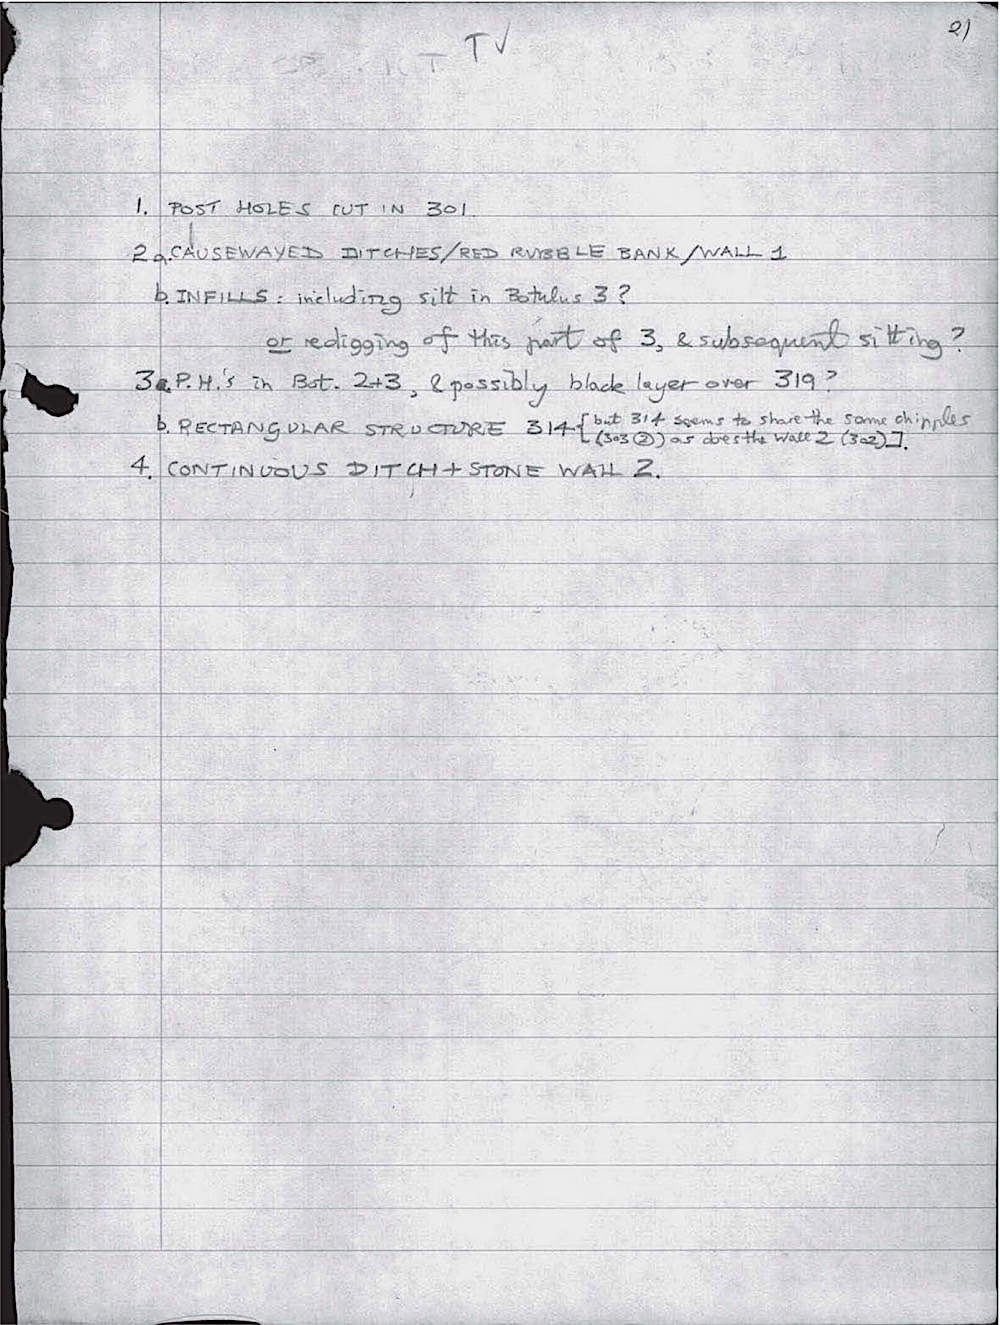 21
T✓
1. POST HOLES CUT IN 301.
2a. CAUSEWAYED DITCHES/RED RUBBLE BANK/WALL 1
b. INFILLS: including silt in Botulus 3?
or redigging of this part of 3, & subsequent silting?
3a. P.H.'s in Bot. 2+3, & possibly black layer over 319?
b. RECTANGULAR STRUCTURE 314 [but 314 seems to share the same chipples
(303②) as does the Wall 2 (302)].
4. CONTINUOUS DITCH + STONE WALL 2.